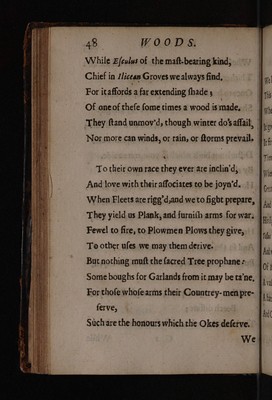 48 WOODS.
While Eſculus of the maſt-bearing kind,
Chief in Ilicean Groves we always find.
For it affords a far extending ſhade;
Of one of theſe ſome times a wood is made.
They ſtand unmov'd, though winter do's aſſail,
Nor more can winds, or rain, or ſtorms prevail.
To their own race they ever are inclin'd,
And love with their aſſociates to be joyn'd.
When Fleets are rigg'd, and we to fight prepare,
They yield us Plank, and furniſh arms for war.
Fewel to fire, to Plowmen Plows they give,
To other uſes we may them derive.
But nothing muſt the ſacred Tree prophane:
Some boughs for Garlands from it may be ta'ne,
For thoſe whoſe arms their Countrey-men pre-
ſerve,
Such are the honours which the Okes deſerve.
We